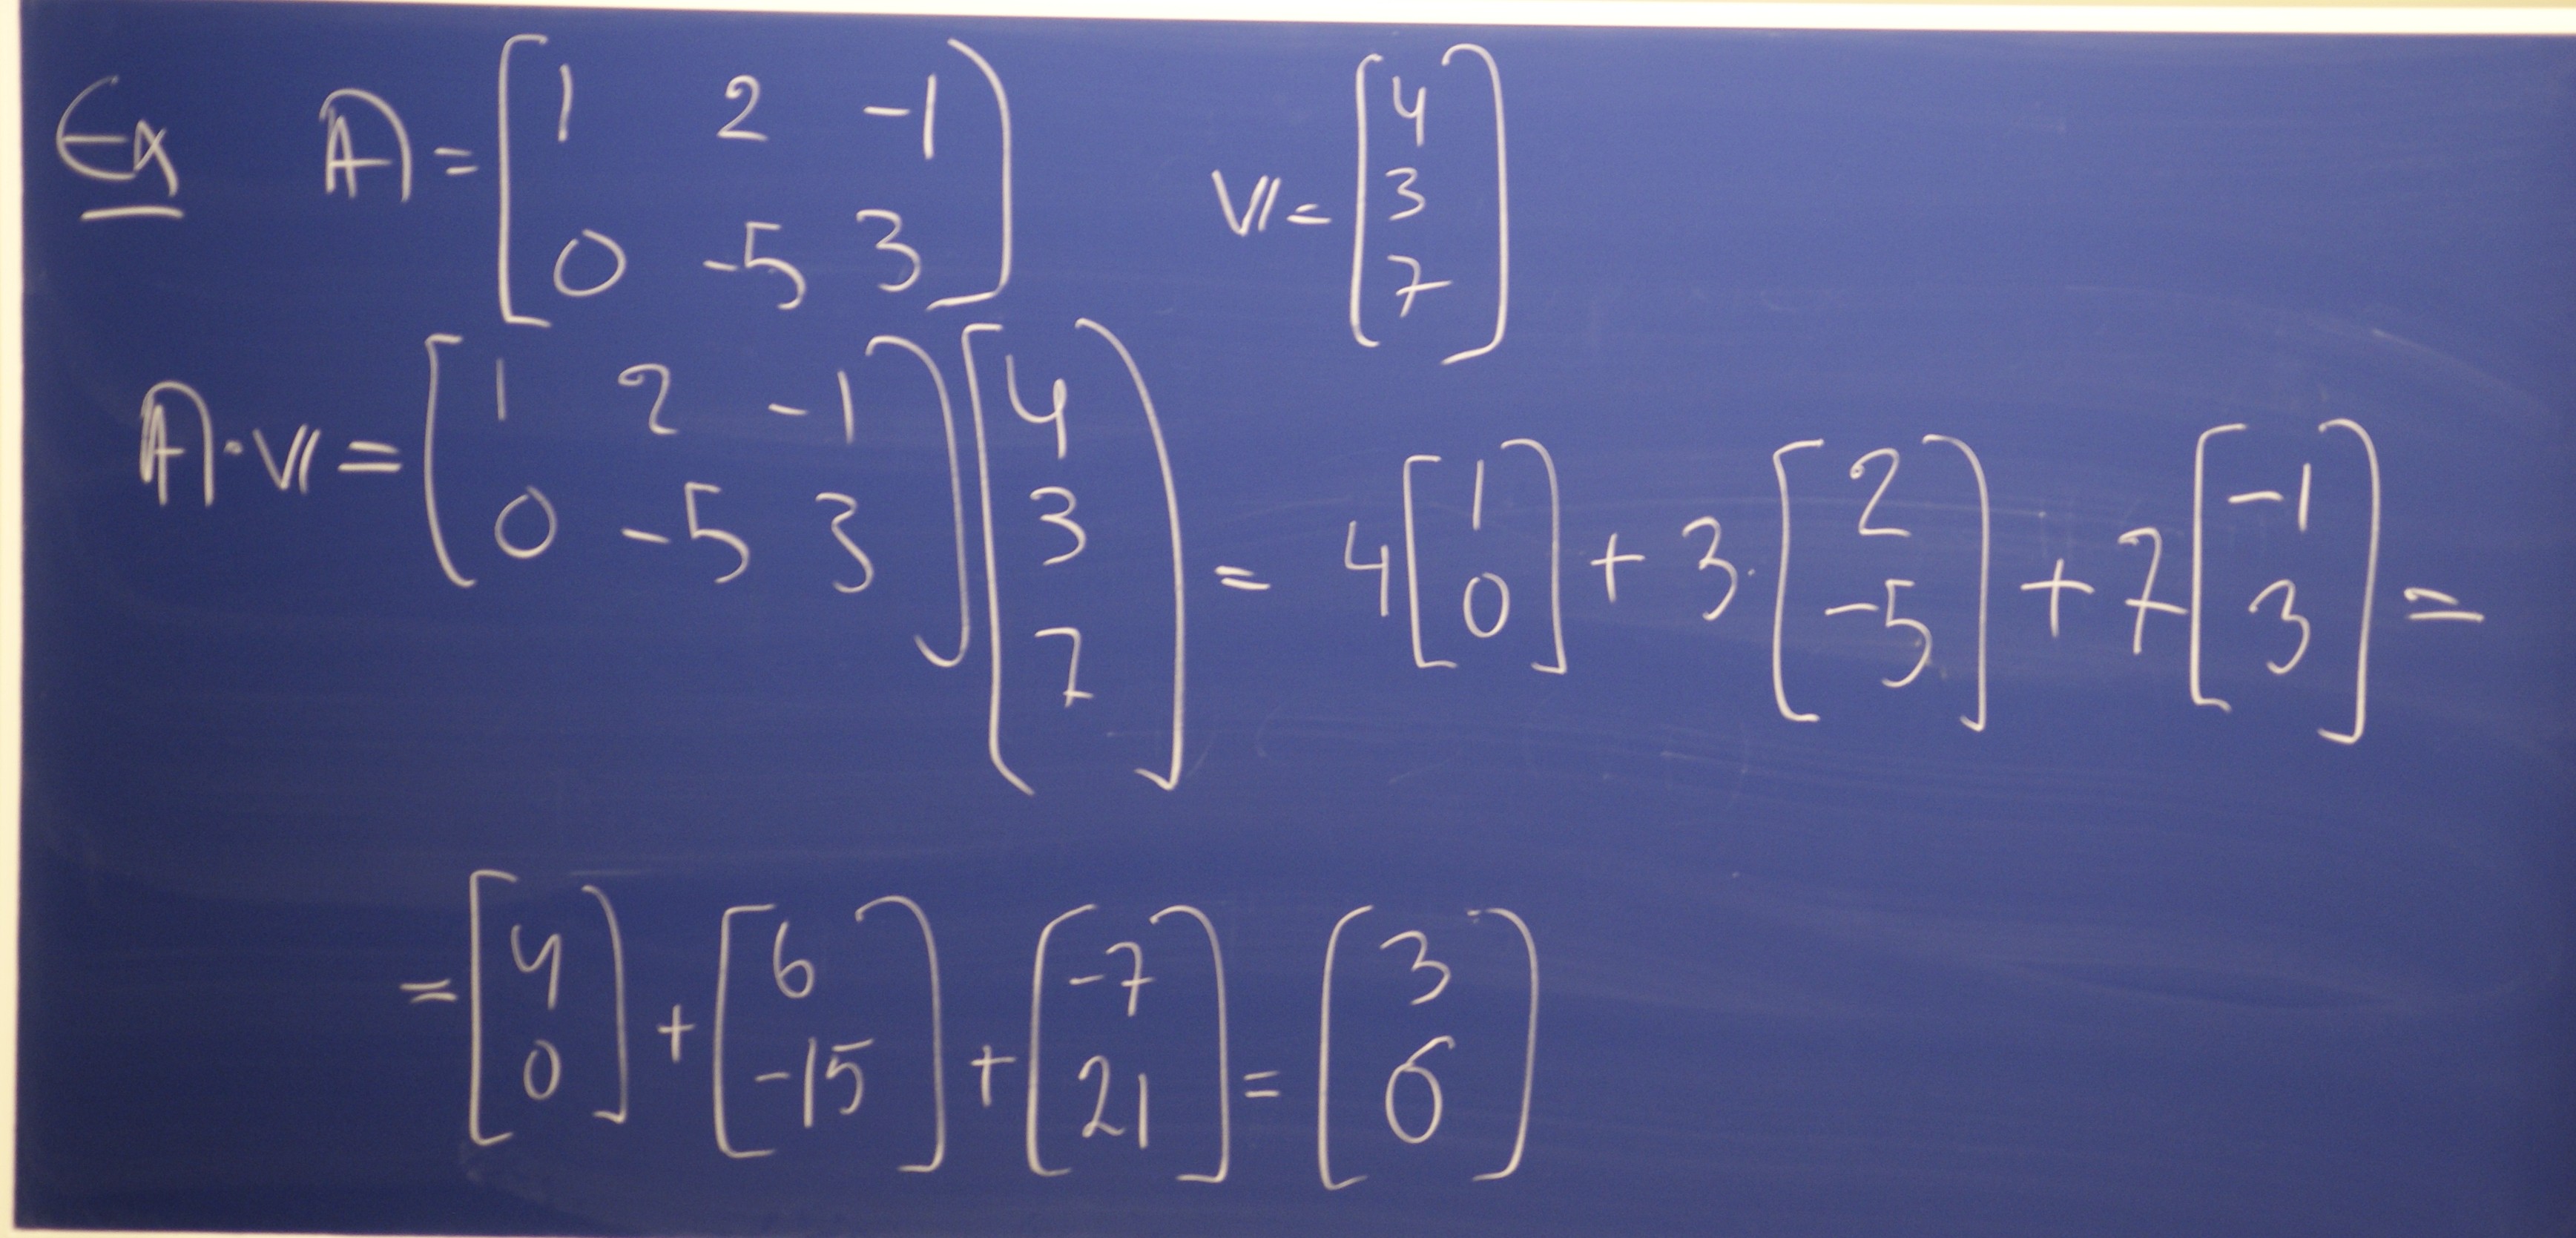 Ex A = [1 2 -1; 0 -5 3] v = [4; 3; 7]
A·v = [1 2 -1; 0 -5 3] [4; 3; 7] = 4 [1; 0] + 3· [2; -5] + 7 [-1; 3] =
= [4; 0] + [6; -15] + [-7; 21] = [3; 6]